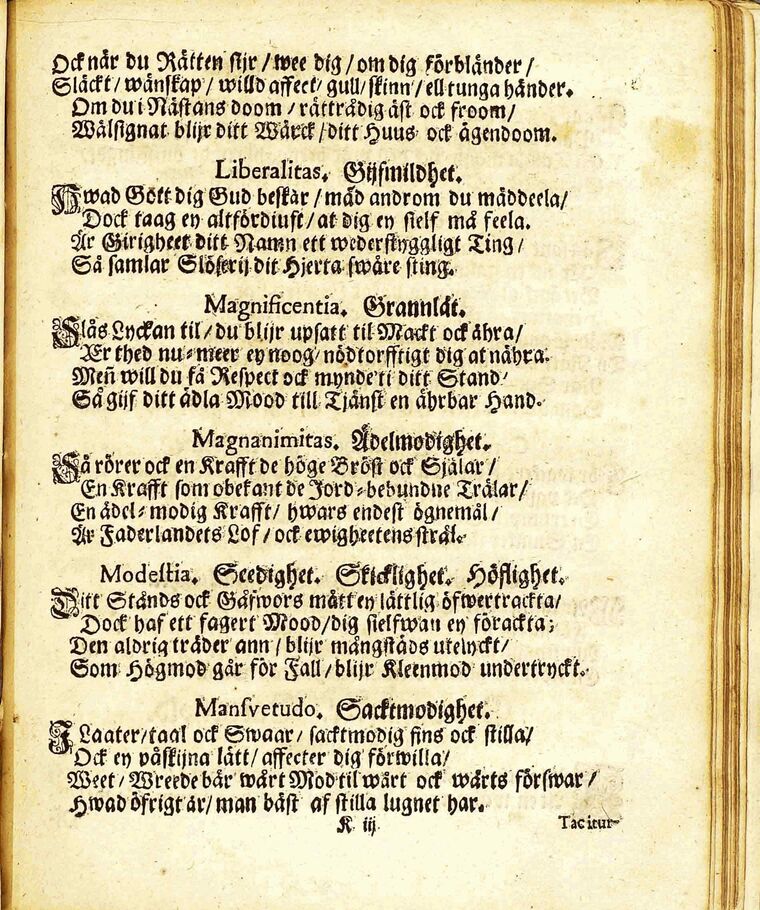 Ock när du Rätten sijr / wee dig / om dig förbländer /
Släckt / wänskap / willd affect / gull / skinn / ell tunga händer.
Om du i Nästans doom / rättrådig äst ock froom /
Wälsignat blijr ditt Wärck / ditt Huus ock ägendoom.
Liberalitas. Gijfmildhet.
Hwad Gott dig Gud beskär / mäd androm du mäddeela /
Dock taag ey altfördiuft / at dig ey sielf må feela.
Är Girigheet ditt Namn ett wederstyggligt Ting /
Så samlar Slöserij dit Hjerta swåre sting.
Magnificentia. Grannlåt.
Slås Lyckan til / du blijr upsatt til Mackt ock ähra /
Er thed nu-meer ey noog / nödtorfftigt dig at nähra.
Men̄ will du få Respect ock myndeti ditt Stand /
Så gijf ditt ädla Mood till Tjänst en ährbar Hand.
Magnanimitas. Ädelmodighet.
Så rörer ock en Krafft de höge Bröst ock Själar /
En Krafft som obekant de Jord-bebundne Trälar /
En ädel-modig Krafft / hwars endest ögnemål /
Är Faderlandets Lof / ock ewigheetens strål.
Modestia. Seedighet. Skicklighet. Höflighet.
Ditt Stånds ock Gåfwors mått ey lättlig öfwertrackta /
Dock haf ett fagert Mood / dig sielfwan ey förackta ;
Den aldrig träder ann / blijr mångstäds utelyckt /
Som Högmod går för Fall / blijr Kleenmod undertryckt.
Mansvetudo. Sacktmodighet.
I Laater / taal ock Swaar / sacktmodig fins ock stilla /
Ock ey påskijna lätt / affecter dig förwilla /
Weet / Wreede bär wårt Mod til wårt ock wårts förswar /
Hwad öfrigt är / man bäst af stilla lugnet har.
K iij
Tacitur-